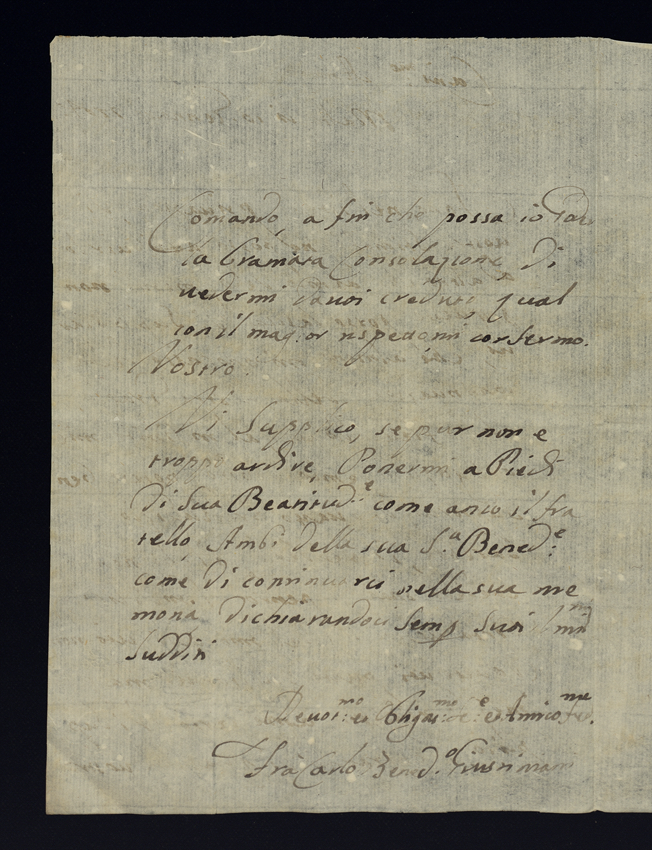 Comando, a fin che possa io
la bramata Consolazione di
vedermi da voi creduto qual
con il mag:or rispedomi confermo.
Vostro.
Vi Supplico, se pur non e
troppo ardire, Ponermi a Piedi
di Sua Beatitud:e come anco il fra
tello, Ambi della sua S:ta Bened:e
come di continuarci nella sua me
moria dichiarandoci Semp suoi
sudditi
Devot:mo e Obligat:mo e Amico
Fra Carlo Bened:o Giustiniani